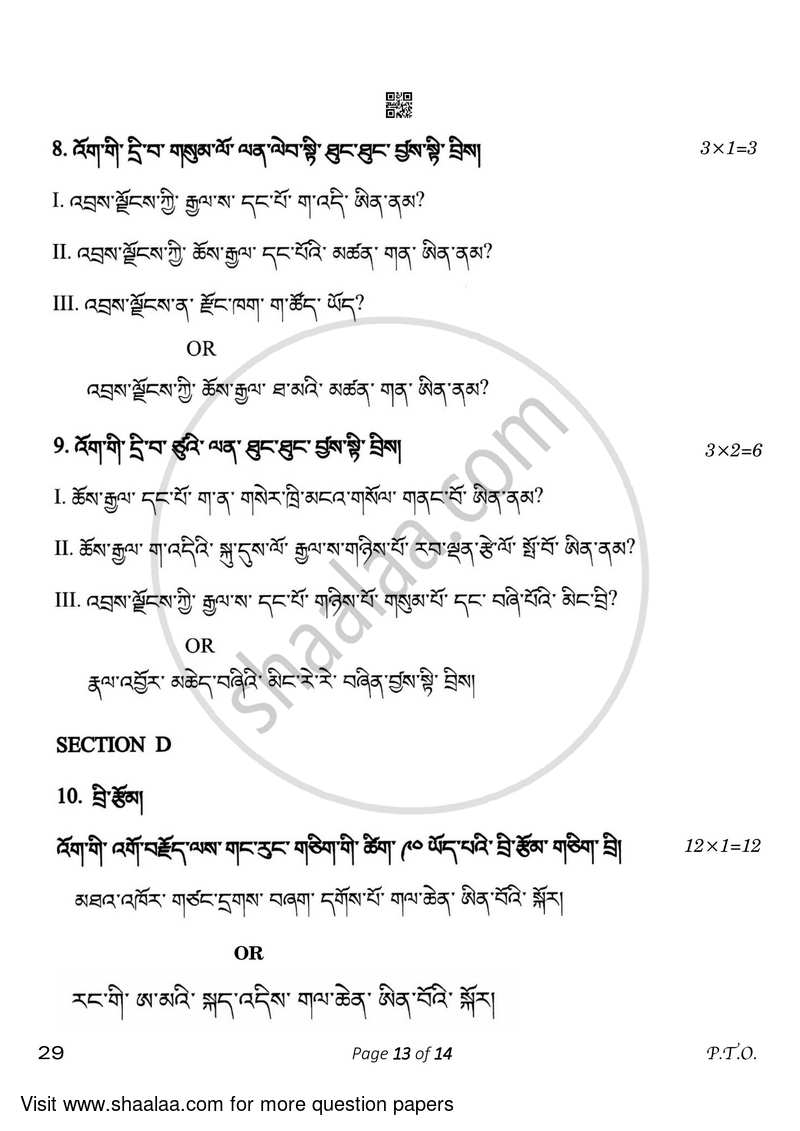 8. འོག་གི་ དྲི་བ་ གསུམ་ལོ་ ལན་ལེབ་སྟི་ ཐུང་ཐུང་ བྱས་སྟི་ བྲིས། 3×1=3
I. འབྲས་ལྗོངས་ཀྱི་ རྒྱལ་ས་ དང་པོ་ ག་འདི་ ཨིན་ནམ?
II. འབྲས་ལྗོངས་ཀྱི་ ཆོས་རྒྱལ་ དང་པོའི་ མཚན་ གན་ ཨིན་ནམ?
III. འབྲས་ལྗོངས་ན་ རྫོང་ཁག་ ག་ཚོད་ ཡོད?
OR
འབྲས་ལྗོངས་ཀྱི་ ཆོས་རྒྱལ་ ཐ་མའི་ མཚན་ གན་ ཨིན་ནམ?
9. འོག་གི་ དྲི་བ་ ཙུའི་ ལན་ ཐུང་ཐུང་ བྱས་སྟི་ བྲིས། 3×2=6
I. ཆོས་རྒྱལ་ དང་པོ་ ག་ན་ གསེར་ཁྲི་མངའ་གསོལ་ གནང་བོ་ ཨིན་ནམ?
II. ཆོས་རྒྱལ་ ག་འདིའི་ སྐུ་དུས་ལོ་ རྒྱལ་ས་གཉིས་པོ་ རབ་ལྡན་རྩེ་ལོ་ སྤོ་བོ་ ཨིན་ནམ?
III. འབྲས་ལྗོངས་ཀྱི་ རྒྱལ་ས་ དང་པོ་ གཉིས་པོ་ གསུམ་པོ་ དང་ བཞི་པོའི་ མིང་བྲི?
OR
རྣལ་འབྱོར་ མཆེད་བཞིའི་ མིང་རེ་རེ་ བཞིན་བྱས་སྟི་ བྲིས།
SECTION D
10. བྲི་རྩོམ།
འོག་གི་ འགོ་བརྗོད་ལས་ གང་རུང་ གཅིག་གི་ ཚིག་ ༩༠ ཡོད་པའི་ བྲི་རྩོམ་ གཅིག་ བྲི། 12×1=12
མཐའ་འཁོར་ གཙང་དྲགས་ བཞག་ དགོས་པོ་ གལ་ཆེན་ ཨིན་བོའི་ སྐོར།
OR
རང་གི་ ཨ་མའི་ སྐད་འདིས་ གལ་ཆེན་ ཨིན་བོའི་ སྐོར།
29 Page 13 of 14 P.T.O.
shaalaa.com
Visit www.shaalaa.com for more question papers